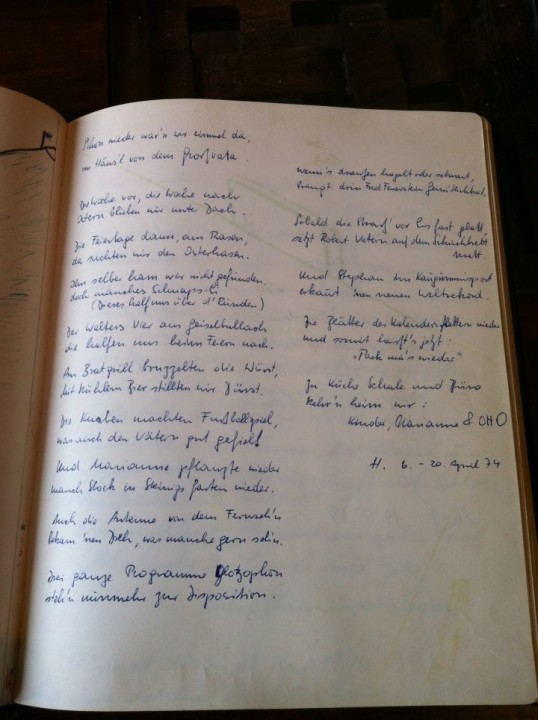 Schon wieder war'n wir einmal da,
im Häus'l von dem Großvata.
Die Woche vor, die Woche nach
Ostern blieben wir unter Dach.
Die Feiertage dann, am Rasen,
da suchten wir den Osterhasen.
Ihn selber ham wir nicht gefunden,
doch manches Schnaps-Ei
(Dieses half uns über d' Runden)
Der Walters Vier aus Geiselbullach
die halfen uns beim Feiern nach.
Am Bratgrill bruzzelten die Würst,
mit kühlem Bier stillten wir Dürst.
Die Knaben machten Fußballspiel,
was auch den Vätern gut gefiel!
Und Marianne pflanzte wieder
manch Stock in Steinigs Garten nieder.
Auch die Antenne von dem Fernseh'n
bekam 'nen Dreh, was manche gern seh'n.
Drei ganze Programme Glotzophon
steh'n nunmehr zur Disposition.
wenn's draußen hagelt oder schneit,
bringt drin Gemütlichkeit.
Sobald die vor Eis fast glatt,
setzt Robert Vatern auf dem Schachbrett
matt.
Und Stephan im
erkämt 'nen neuen Weltrekord.
Die Blätter des Kalenders flattern wieder
und somit heißt's jetzt:
"Pack ma's wieder"
Zu Küche Schule und Büro
kehr'n heim wir:
Kinder, Marianne & OttO
H. 6. - 20. April 74